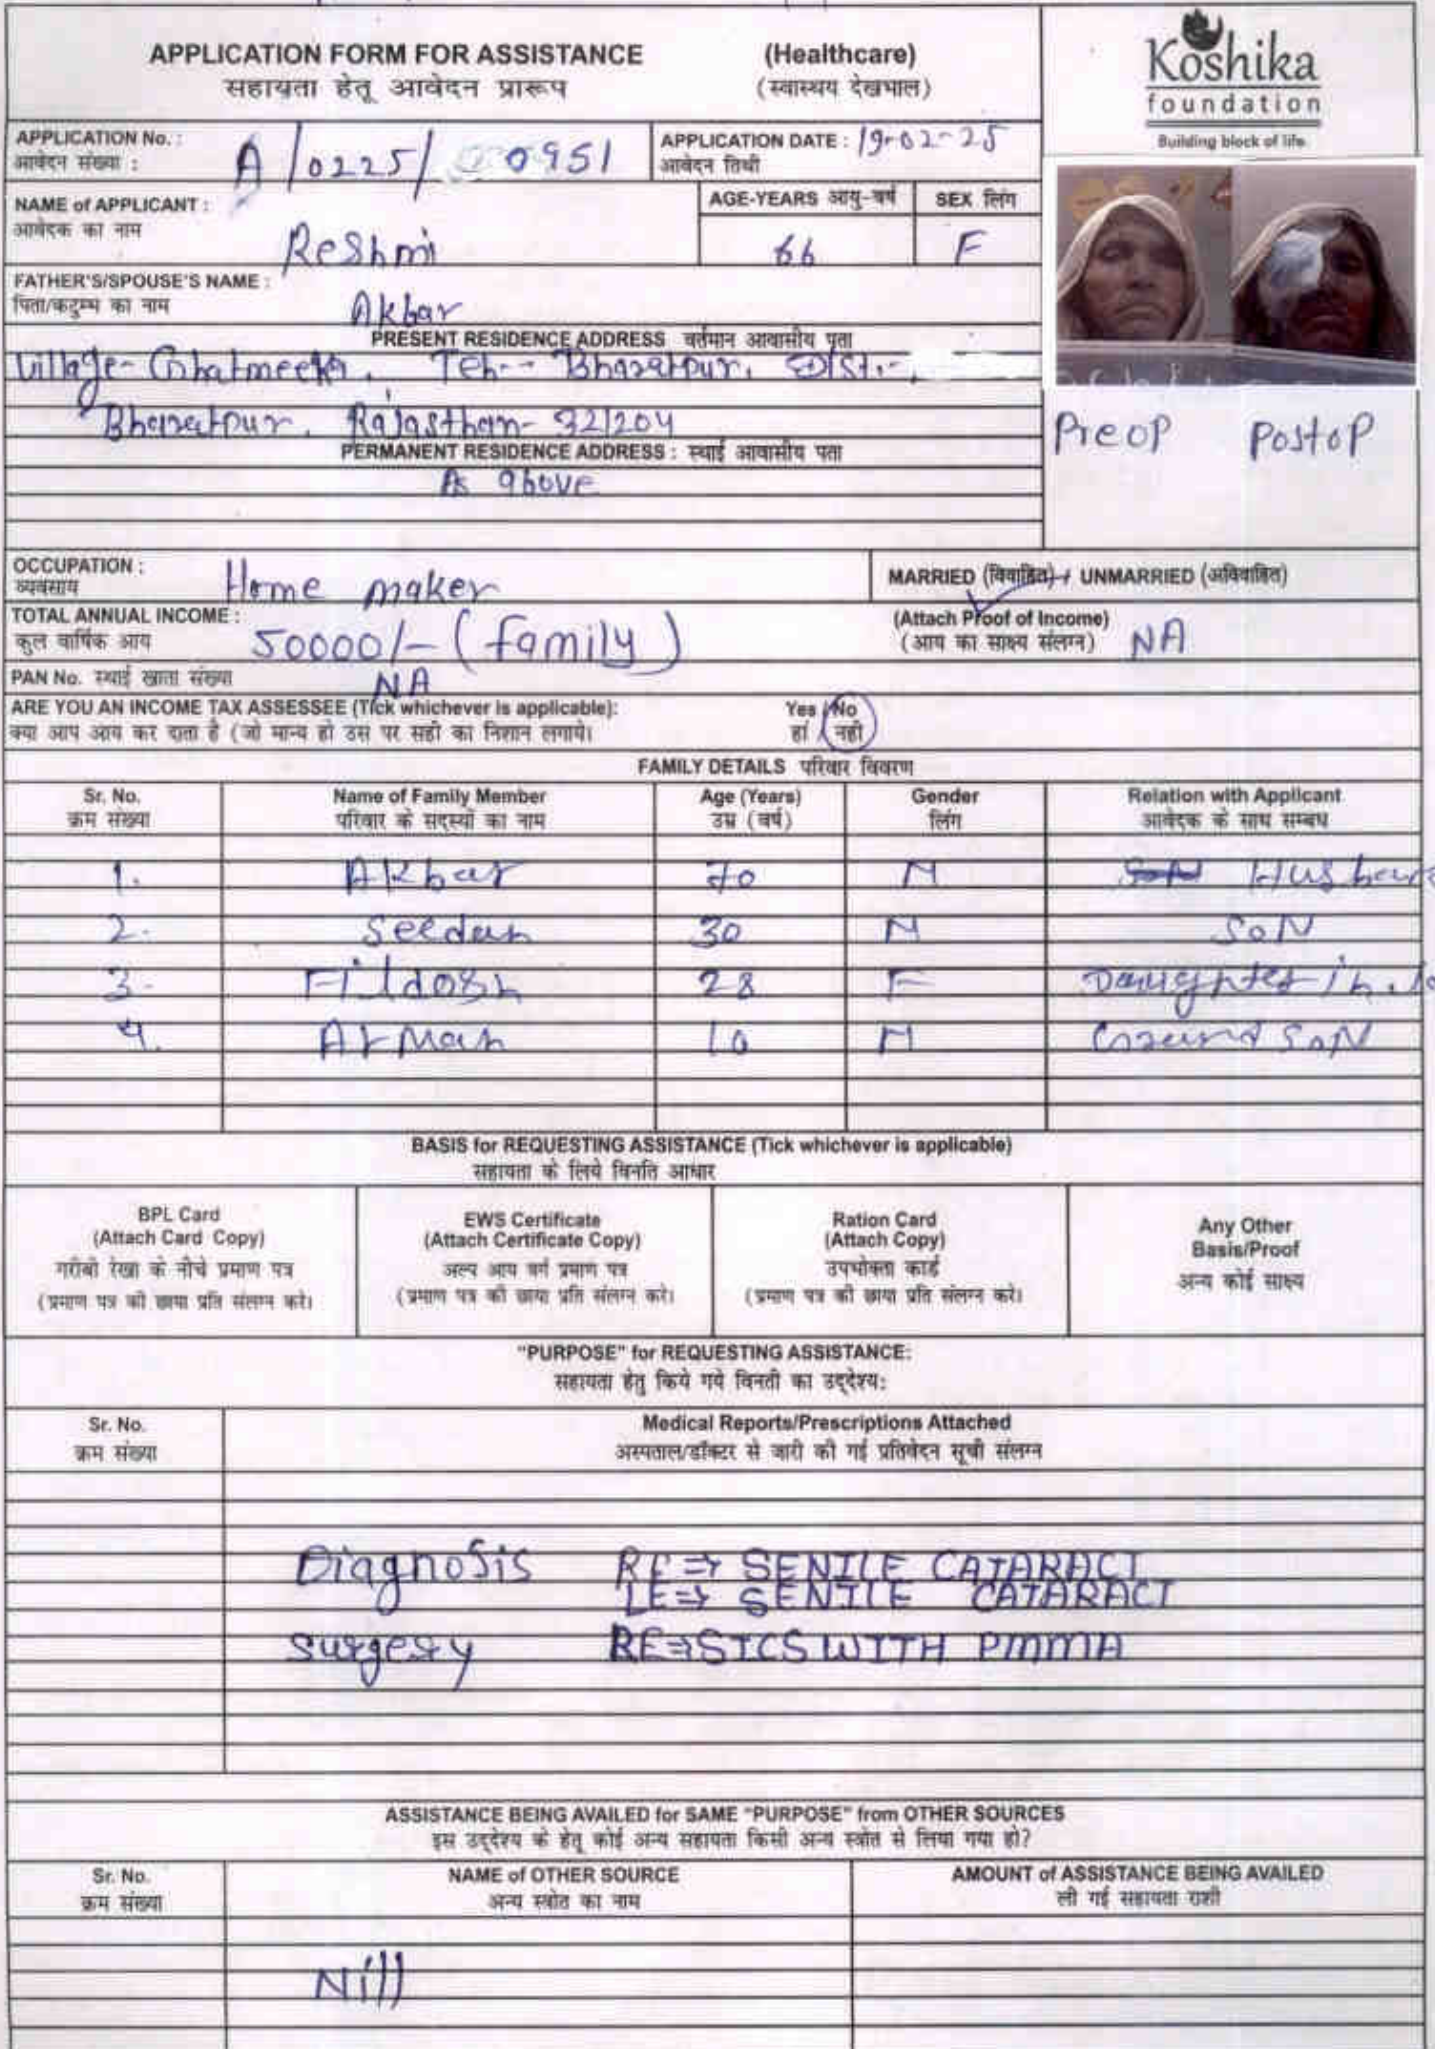 APPLICATION FORM FOR ASSISTANCE (Healthcare)
सहायता हेतू आवेदन प्रारूप (स्वास्थय देखभाल)
Koshika
foundation
Building block of life.
APPLICATION No. : A/0225/ 0951
आवेदन संख्या :
APPLICATION DATE : 19-02-25
आवेदन तिथी
NAME of APPLICANT : Reshmi
आवेदक का नाम
AGE-YEARS आयु-वर्ष 66
SEX लिंग F
FATHER'S/SPOUSE'S NAME : Akbar
पिता/कटुम्ब का नाम
PRESENT RESIDENCE ADDRESS वर्तमान आवासीय पता
Village- Teh-- Bharatpur, Dist.-
Bharatpur, Rajasthan- 321204
PERMANENT RESIDENCE ADDRESS : स्थाई आवासीय पता
As above
Preop Postop
OCCUPATION : Home maker
व्यवसाय
MARRIED (विवाहित) / UNMARRIED (अविवाहित)
TOTAL ANNUAL INCOME : 50000/- (family)
कुल वार्षिक आय
(Attach Proof of Income) NA
(आय का साक्ष्य संलग्न)
PAN No. स्थाई खाता संख्या NA
ARE YOU AN INCOME TAX ASSESSEE (Tick whichever is applicable): Yes / No
क्या आप आय कर दाता है (जो मान्य हो उस पर सही का निशान लगाये। हां / नही
FAMILY DETAILS परिवार विवरण
Sr. No. Name of Family Member Age (Years) Gender Relation with Applicant
क्रम संख्या परिवार के सदस्यों का नाम उम्र (वर्ष) लिंग आवेदक के साथ सम्बध
1. Akbar 70 M
2. 30 M SON
3. 28 F Daughter in
4. Arman 10 M Grand SON
BASIS for REQUESTING ASSISTANCE (Tick whichever is applicable)
सहायता के लिये विनति आधार
BPL Card
(Attach Card Copy)
गरीबी रेखा के नीचे प्रमाण पत्र
(प्रमाण पत्र की छाया प्रति संलग्न करे।
EWS Certificate
(Attach Certificate Copy)
अल्प आय वर्ग प्रमाण पत्र
(प्रमाण पत्र की छाया प्रति संलग्न करे।
Ration Card
(Attach Copy)
उपभोक्ता कार्ड
(प्रमाण पत्र की छाया प्रति संलग्न करे।
Any Other
Basis/Proof
अन्य कोई साक्ष्य
"PURPOSE" for REQUESTING ASSISTANCE:
सहायता हेतु किये गये विनती का उद्देश्य:
Sr. No. Medical Reports/Prescriptions Attached
क्रम संख्या अस्पताल/डॉक्टर से जारी की गई प्रतिवेदन सूची संलग्न
Diagnosis RE⇒ SENILE CATARACT
LE⇒ SENILE CATARACT
Surgery RE⇒SICS WITH PMMA
ASSISTANCE BEING AVAILED for SAME "PURPOSE" from OTHER SOURCES
इस उद्देश्य के हेतू कोई अन्य सहायता किसी अन्य स्त्रोत से लिया गया हो?
Sr. No. NAME of OTHER SOURCE AMOUNT of ASSISTANCE BEING AVAILED
क्रम संख्या अन्य स्त्रोत का नाम ली गई सहायता राशी
Nill